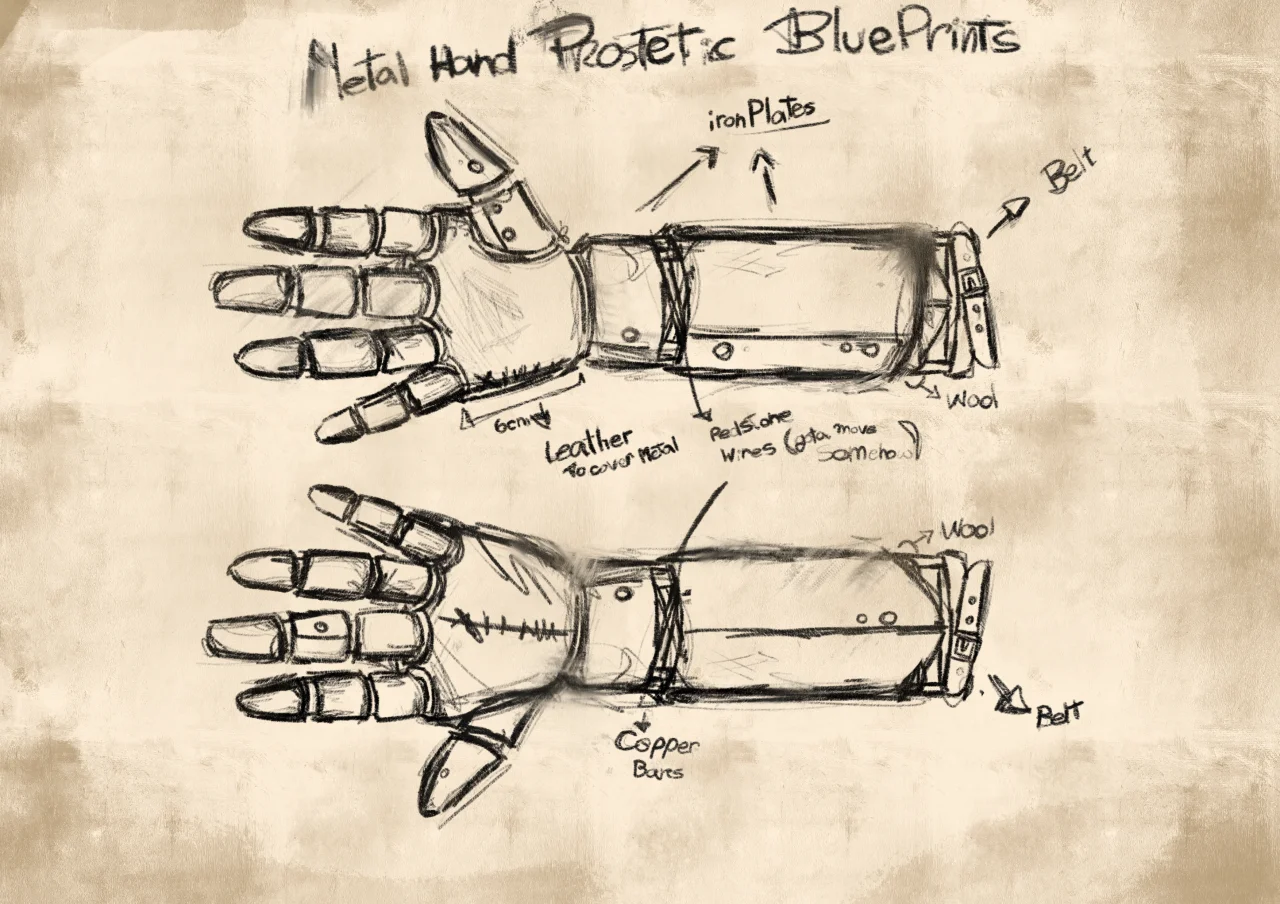 Metal Hand Prostetic BluePrints
iron Plates
Belt
Wool
6cm
Leather
To cover Metal
Redstone
Wires (gota move
somehow)
Wool
Belt
Copper
Bares